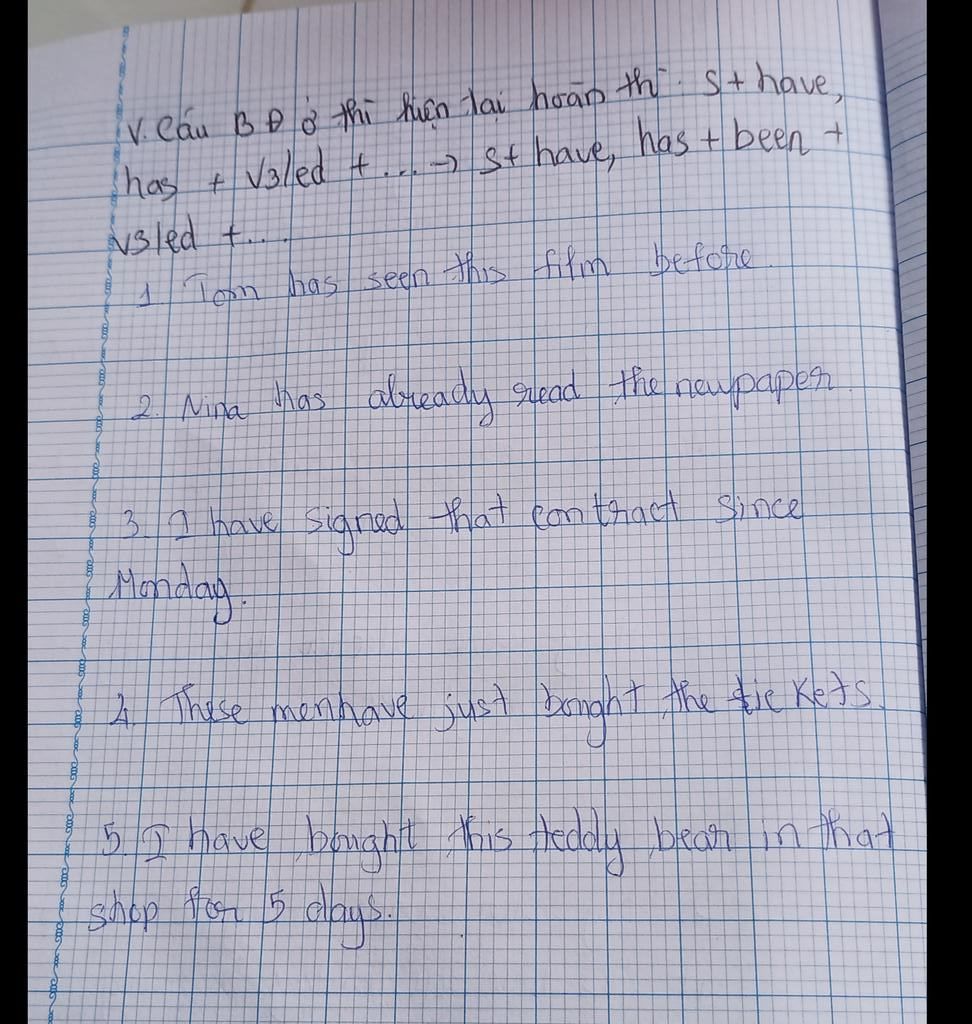 V. Câu BĐ ở thì hiện tại hoàn th S + have,
has + V3/ed + ... → S + have, has + been +
V3/ed + ...
1. Tom has seen this film before.
2. Nina has already read the newpaper.
3. I have signed that contract since
Monday.
4. These men have just bought the tickets.
5. I have bought this teddy bear in that
shop for 5 days.